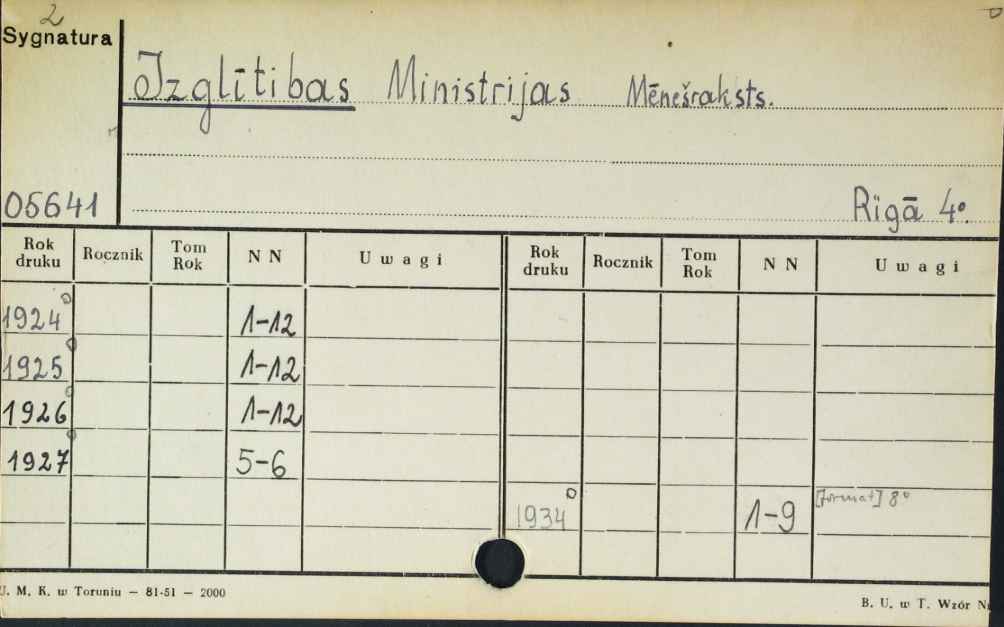 2
Sygnatura
Izglītības Ministrijas Mēnešraksts.
05641
Rīgā 4°.
Rok druku Rocznik Tom Rok NN Uwagi Rok druku Rocznik Tom Rok NN Uwagi
1924° 1-12
1925° 1-12
1926° 1-12
1927° 5-6
1934° 1-9 [format] 8°
U. M. K. w Toruniu — 81-51 — 2000
B. U. w T. Wzór